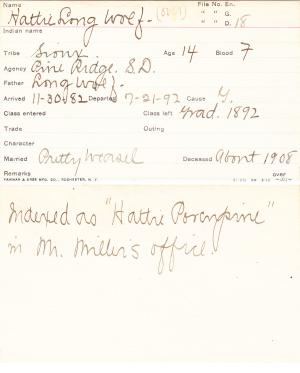 Name File No. En.
Hattie Long Wolf. " " G.
Indian name " " D. 18
Tribe Sioux. Age 14 Blood 7
Agency Pine Ridge. S.D.
Father Long Wolf.
Arrived 11-30-82 Departed 7-21-92 Cause
Class entered Class left Grad. 1892
Trade Outing
Character
Married Pretty Weasel Deceased About 1908
Remarks over
YAWMAN & ERBE MFG. CO., ROCHESTER, N. Y.
Indexed as "Hattie Porcupine"
in Mr. Miller's office.